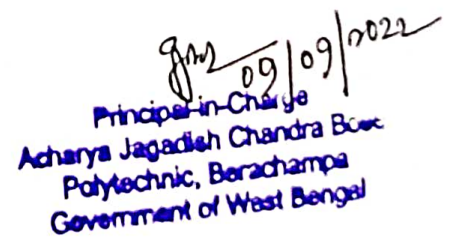 09/09/2022
Principal-in-Charge
Acharya Jagadish Chandra Bose
Polytechnic, Berachampa
Government of West Bengal